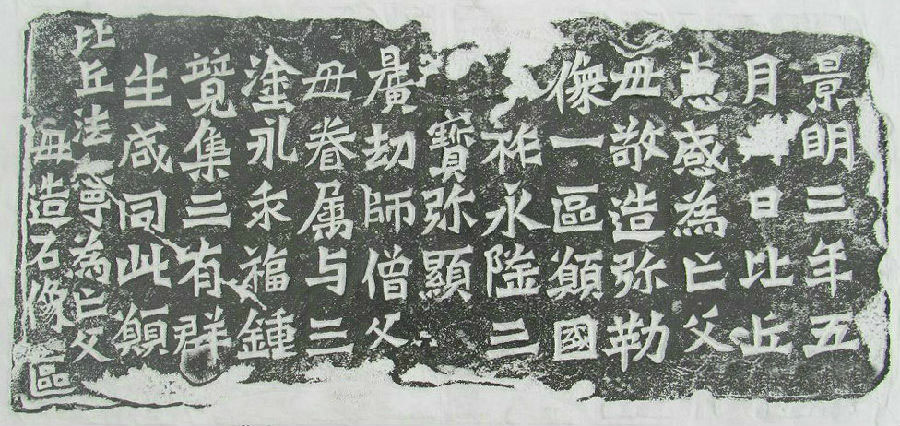 景明三年五
月卅日比丘
惠感為亡父
母敬造弥勒
像一區願國
祚永隆三
寶弥顯
曠劫師僧父
母眷属与三
塗永乖福鍾
竟集三有群
生咸同此願
比丘法寧為亡父
母造石像區